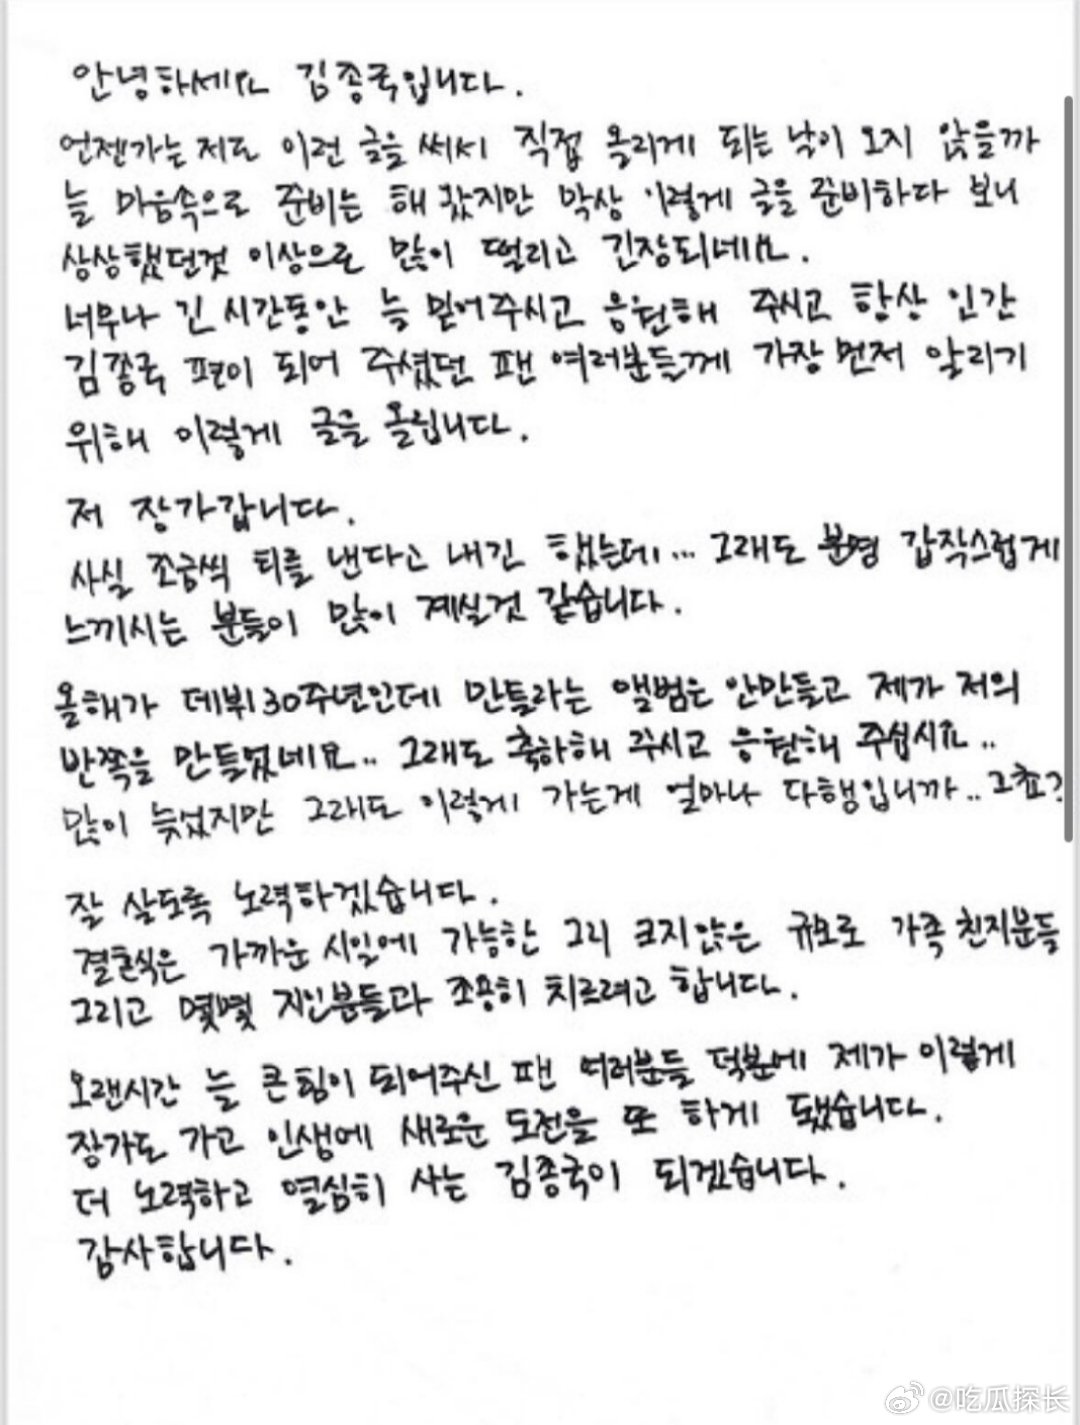 안녕하세요 김종국입니다.
언젠가는 저도 이런 글을 써서 직접 올리게 되는 날이 오지 않을까
늘 마음속으로 준비는 해 왔지만 막상 이렇게 글을 준비하다 보니
상상했던것 이상으로 많이 떨리고 긴장되네요.
너무나 긴 시간동안 늘 믿어주시고 응원해 주시고 항상 인간
김종국 편이 되어 주셨던 팬 여러분들께 가장 먼저 알리기
위해 이렇게 글을 올립니다.
저 장가갑니다.
사실 조금씩 티를 낸다고 내긴 했는데... 그래도 분명 갑작스럽게
느끼시는 분들이 많이 계실것 같습니다.
올해가 데뷔30주년인데 만들라는 앨범은 안만들고 제가 저의
반쪽을 만들었네요.. 그래도 축하해 주시고 응원해 주십시요..
많이 늦었지만 그래도 이렇게 가는게 얼마나 다행입니까.. 그쵸?
잘 살도록 노력하겠습니다.
결혼식은 가까운 시일에 가능한 그리 크지않은 규모로 가족 친지분들
그리고 몇몇 지인분들과 조용히 치르려고 합니다.
오랜시간 늘 큰 힘이 되어주신 팬 여러분들 덕분에 제가 이렇게
장가도 가고 인생에 새로운 도전을 또 하게 됐습니다.
더 노력하고 열심히 사는 김종국이 되겠습니다.
감사합니다.
@吃瓜探长